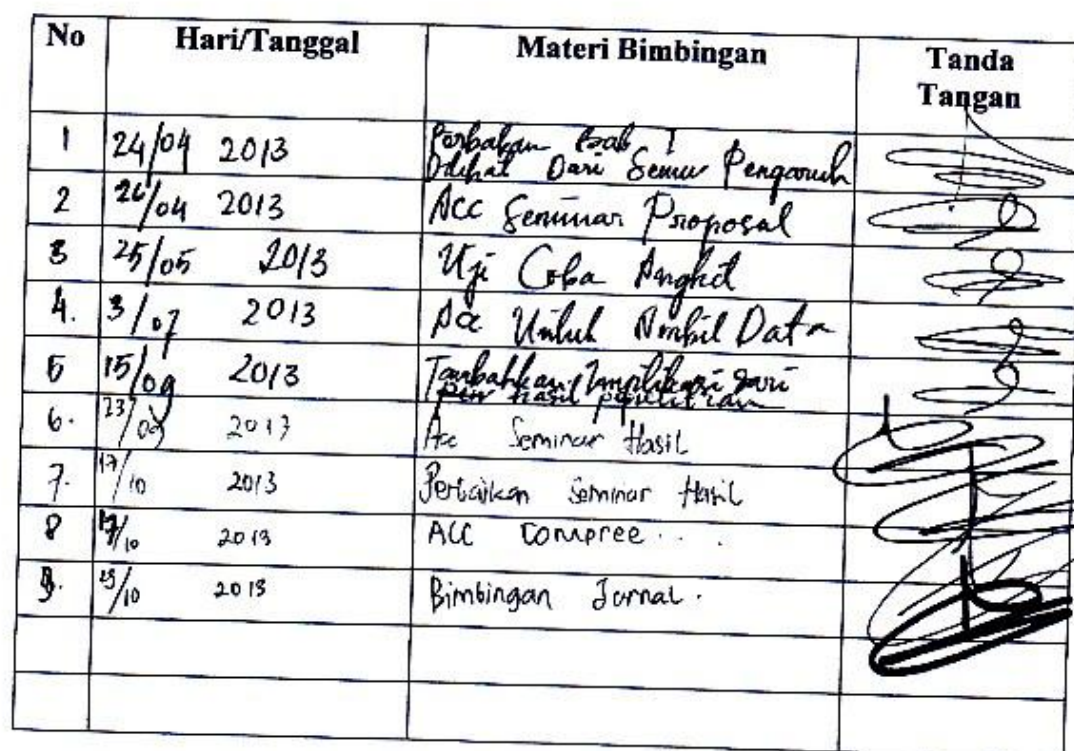 No Hari/Tanggal Materi Bimbingan Tanda
Tangan
1 24/04 2013 Perbaikan Bab I
Dilihat Dari Semua Pengaruh
2 26/04 2013 ACC Seminar Proposal
3 25/05 2013 Uji Coba Angket
4. 3/07 2013 Acc Untuk Ambil Data
5 15/09 2013 Tambahkan Implikasi dari
hasil penelitian
6. 23/09 2013 Acc Seminar Hasil
7. 17/10 2013 Perbaikan Seminar Hasil
8 /10 2013 ACC Compree...
9. /10 2013 Bimbingan Jurnal.